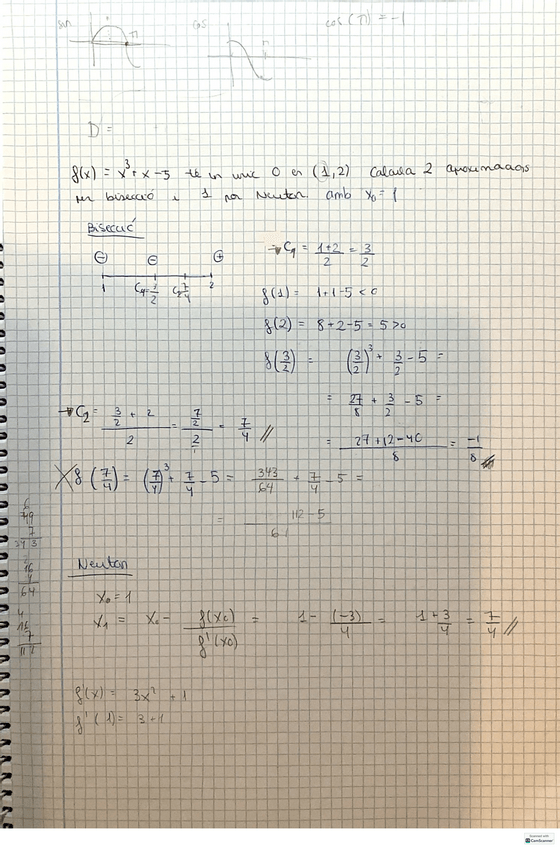 sin cos cos(π) = -1
π π
D =
f(x) = x³ + x - 5 té un unic 0 en (1,2) Calcula 2 aproximacions
per bisecció i 1 per Newton amb x₀ = 1
Bisecció
⊖ ⊖ ⊕
1 C₁=3/2 C₂ 7/4 2
→ C₁ = (1+2)/2 = 3/2
f(1) = 1+1-5 < 0
f(2) = 8+2-5 = 5 > 0
f(3/2) = (3/2)³ + 3/2 - 5 =
= 27/8 + 3/2 - 5 =
= (27+12-40)/8 = -1/8 //
→ C₂ = (3/2 + 2)/2 = (7/2)/2 = 7/4 //
f(7/4) = (7/4)³ + 7/4 - 5 = 343/64 + 7/4 - 5 =
= 112 - 5
6
49
7
343
2
16
4
64
4
16
7
112
Newton
x₀ = 1
x₁ = x₀ - f(x₀)/f'(x₀) = 1 - (-3)/4 = 1+3/4 = 7/4 //
f'(x) = 3x² + 1
f'(1) = 3+1
Scanned with
CamScanner